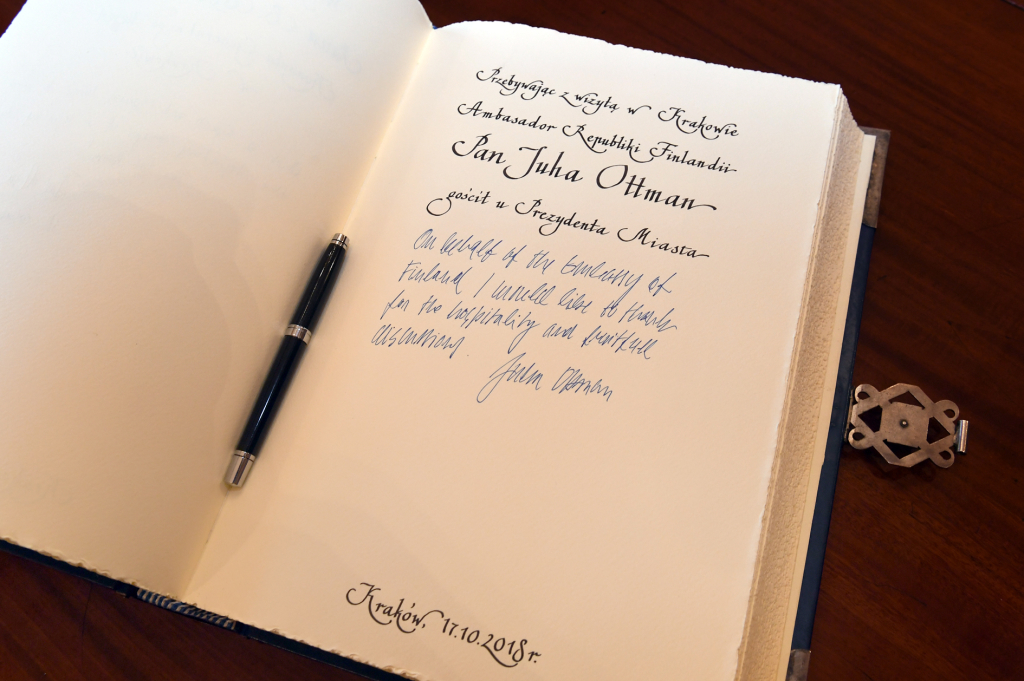 Przebywając z wizytą w Krakowie
Ambasador Republiki Finlandii
Pan Juha Ottman
gościł u Prezydenta Miasta
On behalf of the Embassy of
Finland I would like to thank
for the hospitality and fruitfull
discussions.
Juha Ottman
Kraków, 17.10.2018r.